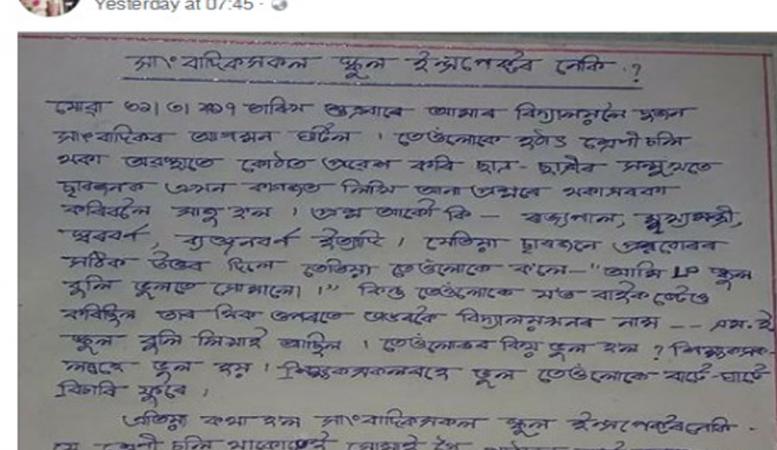 Yesterday at 07:45 ·
সাংবাদিকসকল স্কুল ইন্সপেক্টৰ নেকি ?
যোৱা ৩১/৩/২০১৭ তাৰিখ শুক্ৰবাৰে আমাৰ বিদ্যালয়লৈ দুজন
সাংবাদিকৰ আগমন ঘটিল । তেওঁলোকে হঠাৎ শ্ৰেণী চলি
থকা অৱস্থাতে কোঠাত প্ৰৱেশ কৰি ছাত্ৰ-ছাত্ৰীৰ সন্মুখতে
ছাৰজনক এখন কাগজত লিখি অনা প্ৰশ্নৰে
কৰিবলৈ সাজু হ'ল । প্ৰশ্ন আকৌ কি – ৰাজ্যপাল, মুখ্যমন্ত্ৰী,
স্বৰবৰ্ণ, ব্যঞ্জনবৰ্ণ ইত্যাদি । যেতিয়া ছাৰজনে প্ৰশ্নবোৰৰ
সঠিক উত্তৰ দিলে তেতিয়া তেওঁলোকে ক'লে – "আমি LP স্কুল
বুলি ভুলতে সোমালো ।" কিন্তু তেওঁলোকে য'ত বাইক ষ্টেণ্ড
কৰিছিল তাৰ ঠিক ওপৰতে ডাঙৰকৈ বিদ্যালয়খনৰ নাম -- এম.ই
স্কুল বুলি লিখাই আছিল । তেওঁলোকৰ কিয় ভুল হ'ল ? শিক্ষকসক-
লৰহে ভুল হয় । শিক্ষকসকলৰহে ভুল তেওঁলোকে বাটে-ঘাটে
বিচাৰি ফুৰে ।
এতিয়া কথা হ'ল সাংবাদিকসকল স্কুল ইন্সপেক্টৰনেকি -
যে শ্ৰেণী চলি থাকোতেই সোমাই গৈ